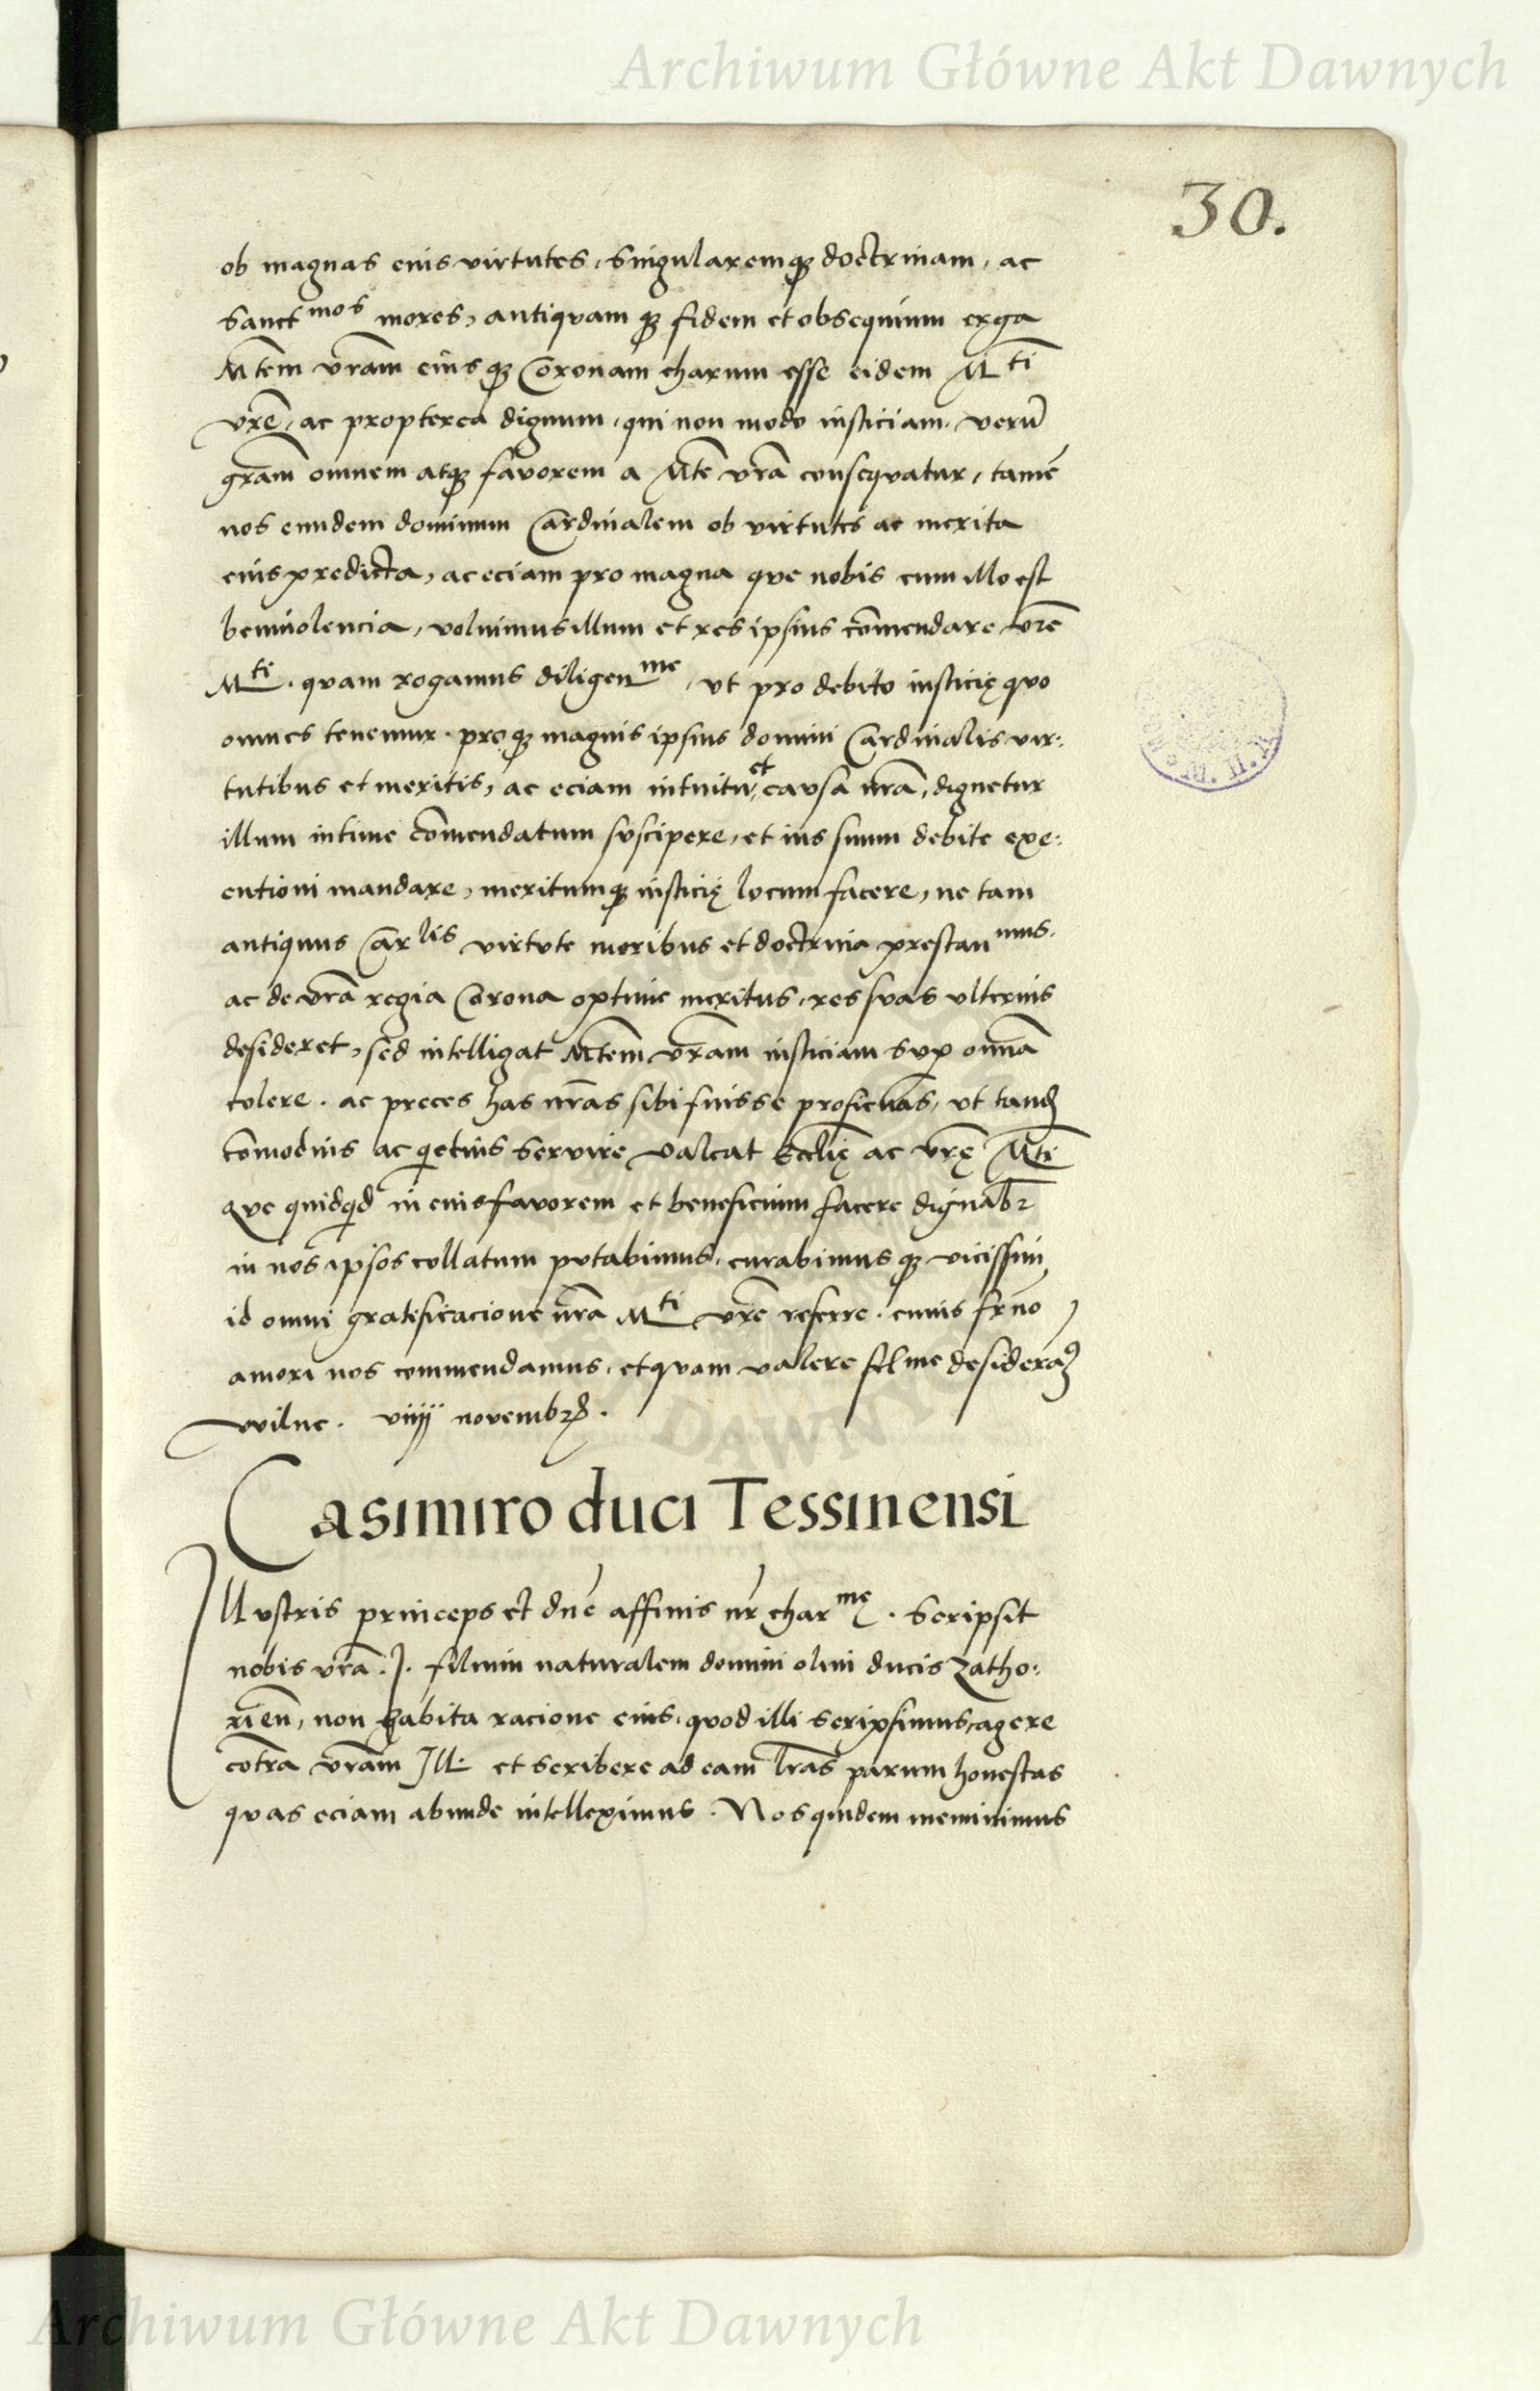 Archiwum Główne Akt Dawnych
30.
ob magnas eius virtutes, singularemqȝ doctrinam, ac
sanctmos mores, antiquam qȝ fidem et obsequium erga
Mtem vram eiusqȝ Coronam charum esse eidem Mti
vre, ac propterea dignum, qui non modo iusticiam, verū
gram omnem atqȝ favorem a Mte vra consequatur, tamē
nos eundem dominum Cardinalem ob virtutes ac merita
eius predicta, ac eciam pro magna que nobis cum illo est
benivolencia, voluimus illum et res ipsius cōmendare vre
Mti. quam rogamus diligenme, vt pro debito iusticię quo
omnes tenemur. proqȝ magnis ipsius domini Cardinalis vir:
tutibus et meritis, ac eciam intuitu et causa nra, dignetur
illum intime cōmendatum suscipere, et ius suum debite exe:
cutioni mandare, meritumqȝ iusticię locum facere, ne tam
antiquus Carlis virtute moribus et doctrina prestanmus.
ac de vra regia Corona optime meritus, res suas ulterius
desideret, sed intelligat Mtem vram iusticiam sup omnā
colere. ac preces has nras sibi fuisse proficuas, vt tandē
cōmodius ac qietius servire valeat Ecclię ac vrę Mti
que quidqid in eius favorem et beneficium facere dignabr
in nos ipsos collatum putabimus, curabimusqȝ vicissim
id omni gratificacione nra Mti vre referre. cuius frno
amori nos commendamus, et quam valere felme desideramꝰ
wilne. viiij novembrꝭ.
Casimiro duci Tessinensi
Illustris princeps et dne affinis nr charmę. Scripsit
nobis vra .I. filium naturalem domini olim ducis Zatho:
rien, non habita racione eius, quod illi scripsimus, agere
cōtra vram Ill. et scribere ad eam lras parum honestas
quas eciam abunde intelleximus. Nos quidem meminimus
Archiwum Główne Akt Dawnych